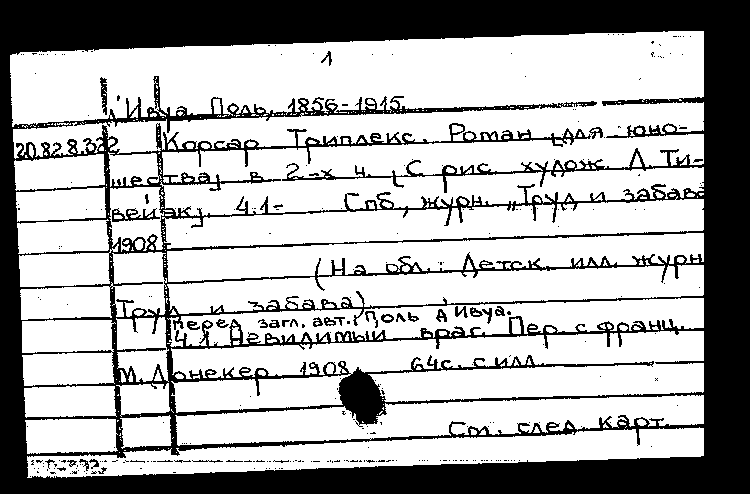 1
д'Ивуа, Поль, 1856-1915.
20.82.8.322 Корсар Триплекс. Роман [для юно-
шества] в 2-х ч. [С рис. худож. Л. Ти-
вейак]. Ч.1- Спб, журн. „Труд и забава
1908-
(На обл.: Детск. илл. журн
Труд и забава)
Перед загл. авт.: Поль д'Ивуа.
Ч.1. Невидимый враг. Пер. с франц.
М. Донекер. 1908. 64с. с илл.
См. след. карт.